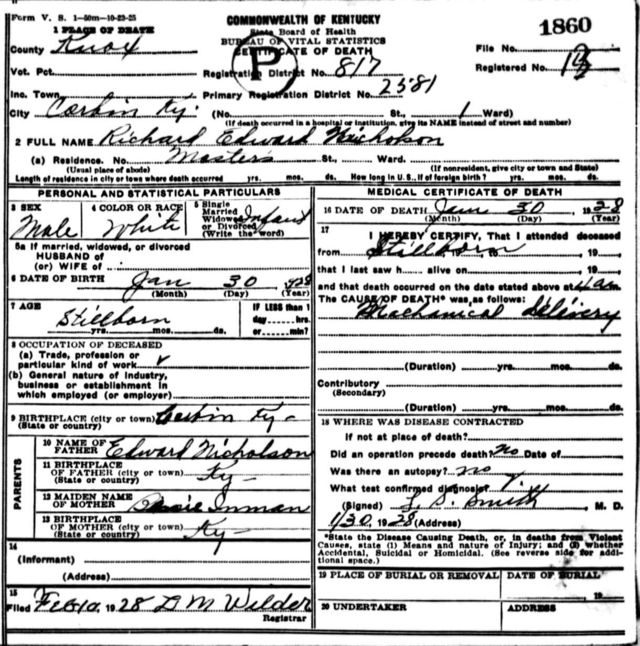 Form V. S. 1-50m-10-23-25
COMMONWEALTH OF KENTUCKY
State Board of Health
BUREAU OF VITAL STATISTICS
CERTIFICATE OF DEATH
1860
1 PLACE OF DEATH
County Knox
File No.
Registered No. 13
Vot. Pct.
Registration District No. 817
P
Inc. Town
Primary Registration District No. 2581
City Corbin Ky. (No. St., 1 Ward)
(If death occurred in a hospital or institution, give its NAME instead of street and number)
2 FULL NAME Richard Edward Nicholson
(a) Residence. No. Masters St., Ward.
(Usual place of abode) (If nonresident, give city or town and State)
Length of residence in city or town where death occurred yrs. mos. ds. How long in U. S., if of foreign birth? yrs. mos. ds.
PERSONAL AND STATISTICAL PARTICULARS
3 SEX Male
4 COLOR OR RACE White
5 Single Married Widowed or Divorced (Write the word) Infant
5a If married, widowed, or divorced
HUSBAND of
(or) WIFE of
6 DATE OF BIRTH Jan 30 1928
(Month) (Day) (Year)
7 AGE Stillborn
yrs. mos. ds.
IF LESS than 1
day hrs.
or min?
8 OCCUPATION OF DECEASED
(a) Trade, profession or
particular kind of work
(b) General nature of industry,
business or establishment in
which employed (or employer)
9 BIRTHPLACE (city or town) Corbin Ky-
(State or country)
PARENTS
10 NAME OF FATHER Edward Nicholson
11 BIRTHPLACE OF FATHER (city or town) Ky-
(State or country)
12 MAIDEN NAME OF MOTHER Inman
13 BIRTHPLACE OF MOTHER (city or town) Ky-
(State or country)
14
(Informant)
(Address)
15
Filed Feb 10, 1928 D M Wilder
Registrar
MEDICAL CERTIFICATE OF DEATH
16 DATE OF DEATH Jan 30 1928
(Month) (Day) (Year)
17
I HEREBY CERTIFY, That I attended deceased
from Stillborn, 19 , 19
that I last saw h alive on , 19
and that death occurred on the date stated above at 4 a m.
The CAUSE OF DEATH* was as follows:
Machanical Delivery
(Duration) yrs. mos. ds.
Contributory
(Secondary)
(Duration) yrs. mos. ds.
18 WHERE WAS DISEASE CONTRACTED
If not at place of death?
Did an operation precede death? no Date of
Was there an autopsy? no
What test confirmed diagnosis?
(Signed) L. S. Smith M. D.
1/30, 1928 (Address)
*State the Disease Causing Death, or, in deaths from Violent
Causes, state (1) Means and nature of Injury; and (2) whether
Accidental, Suicidal or Homicidal. (See reverse side for addi-
tional space.)
19 PLACE OF BURIAL OR REMOVAL
DATE OF BURIAL
19
20 UNDERTAKER
ADDRESS